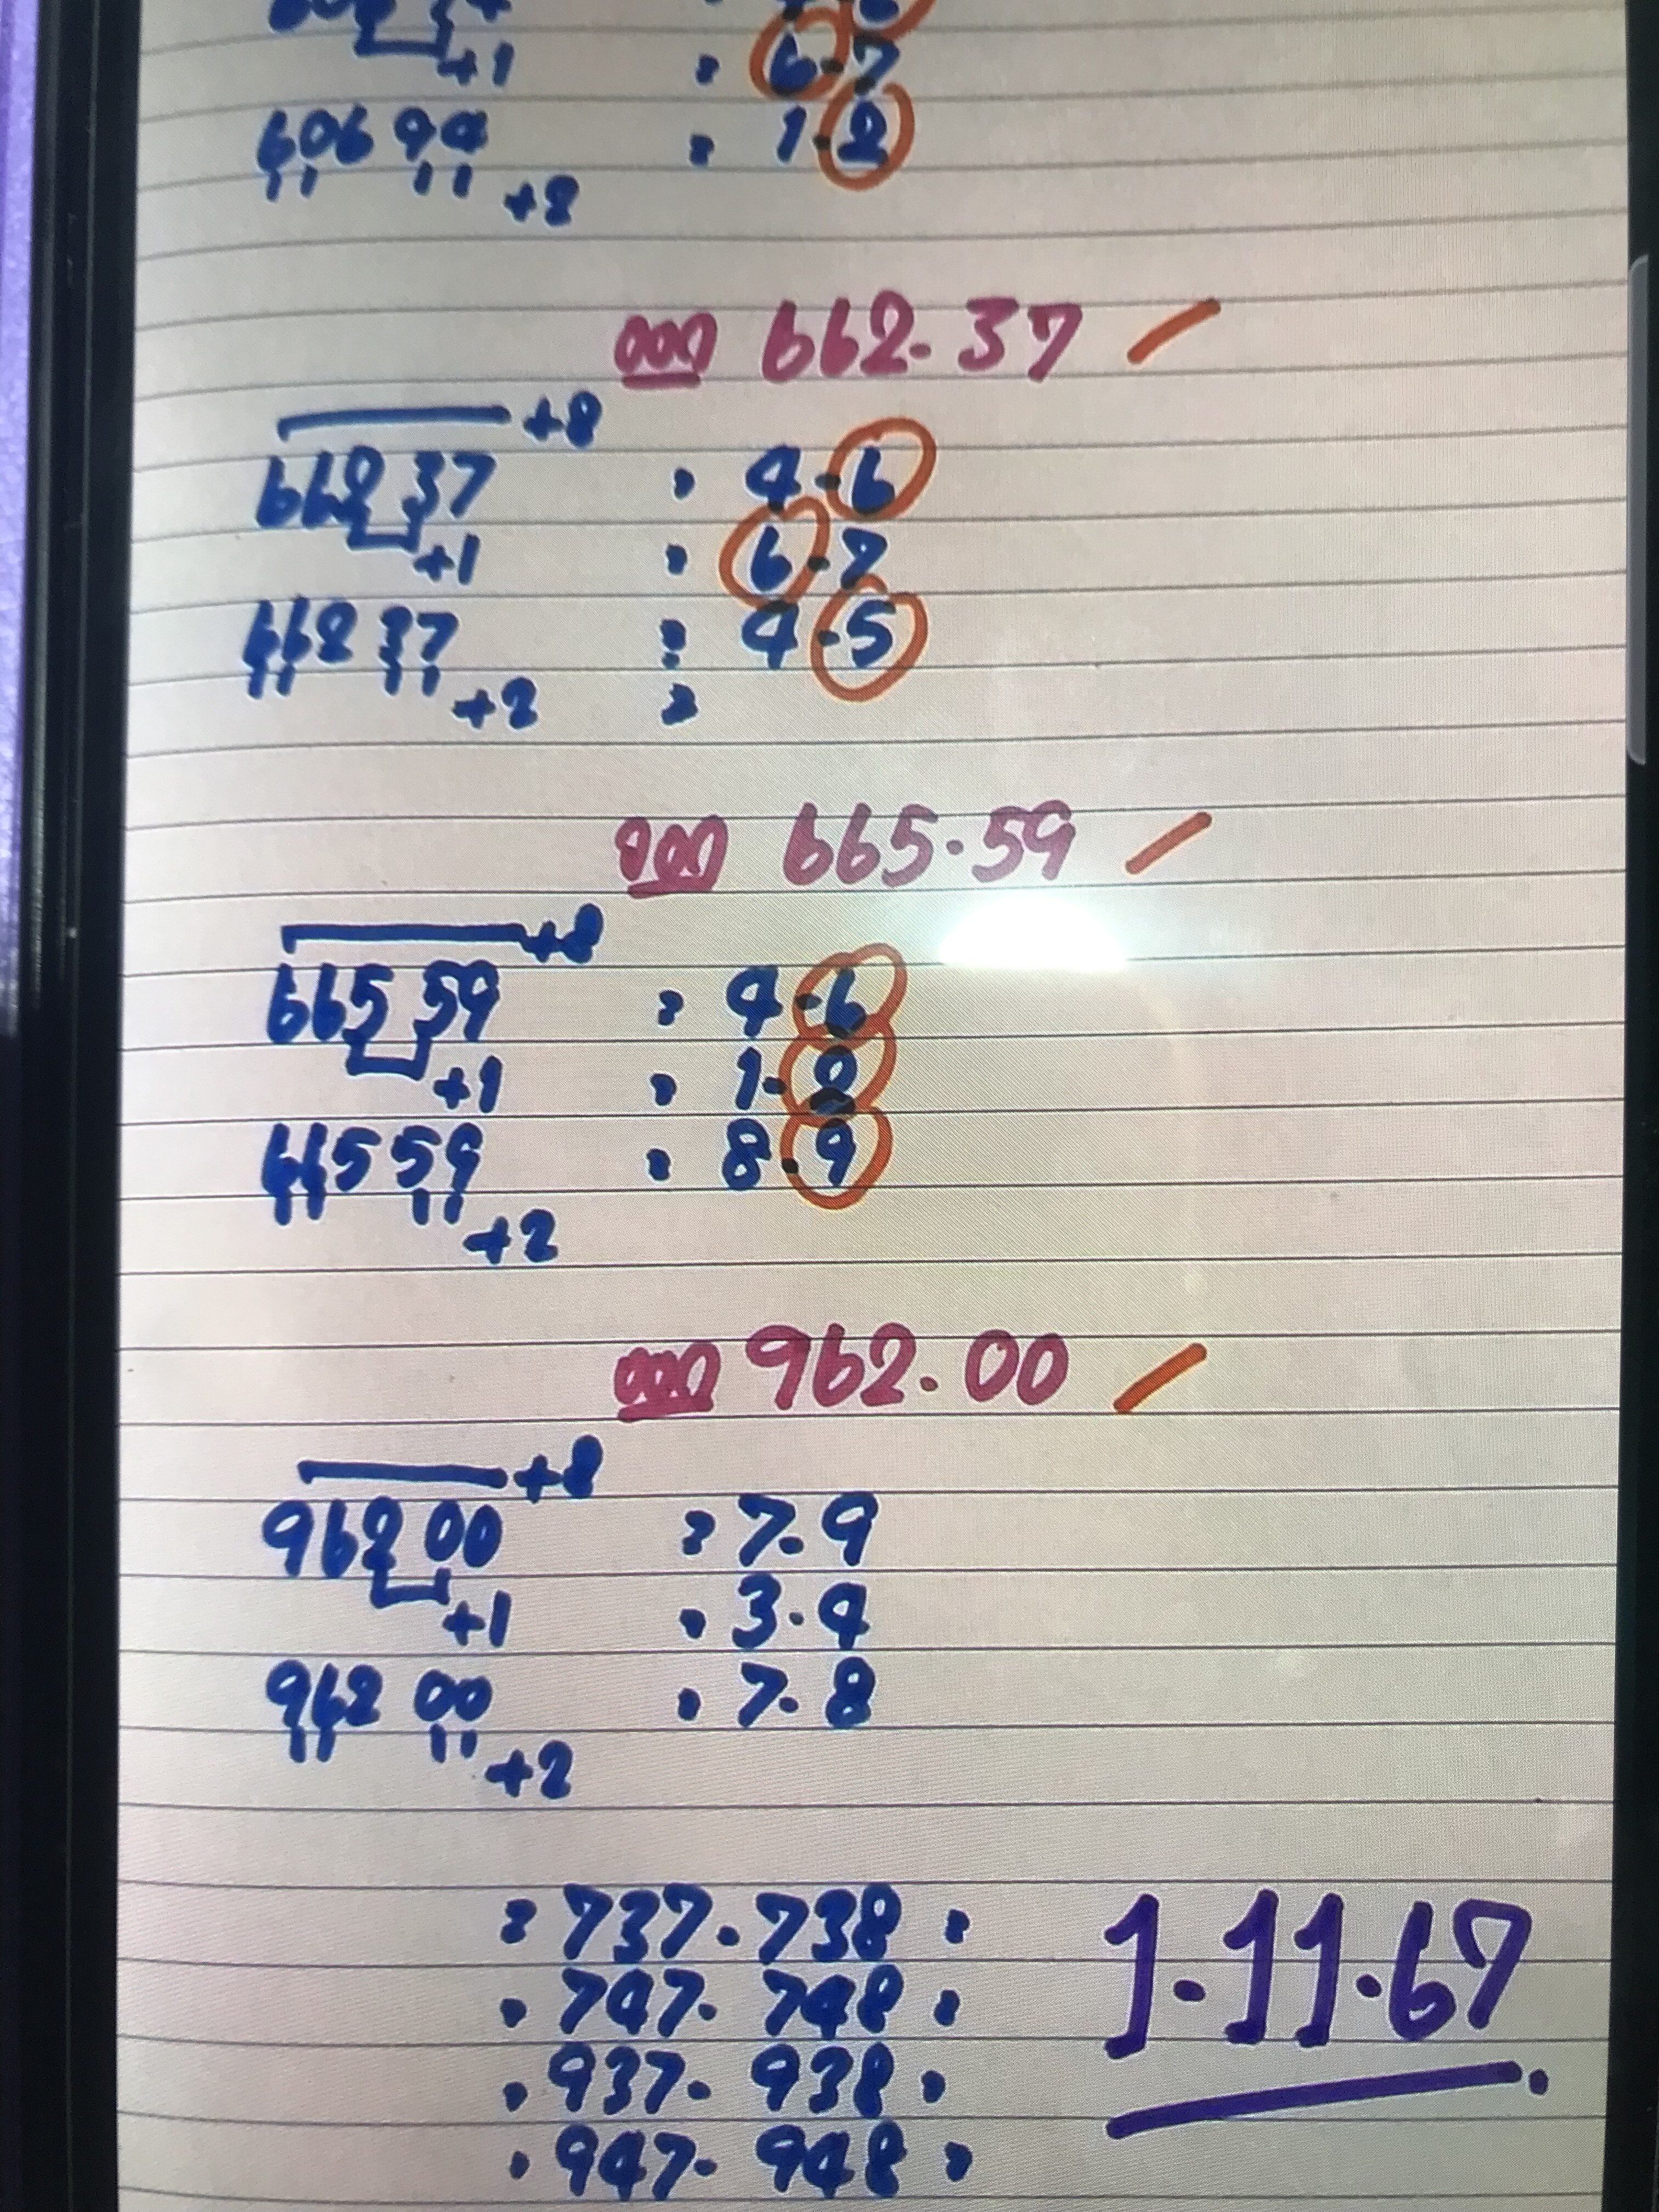 +1 : 6.7
60694 : 1.2
+8
ออก 662.37
+8
662 37 : 4.6
+1 : 6.7
662 37 : 4.5
+2 :
ออก 665.59
+8
665 59 : 4.6
+1 : 1.2
665 59 : 8.9
+2
ออก 962.00
+8
962 00 : 7.9
+1 : 3.4
962 00 : 7.8
+2
: 737.738 :
: 747.748 :
: 937.938 :
: 947.948 :
1.11.67